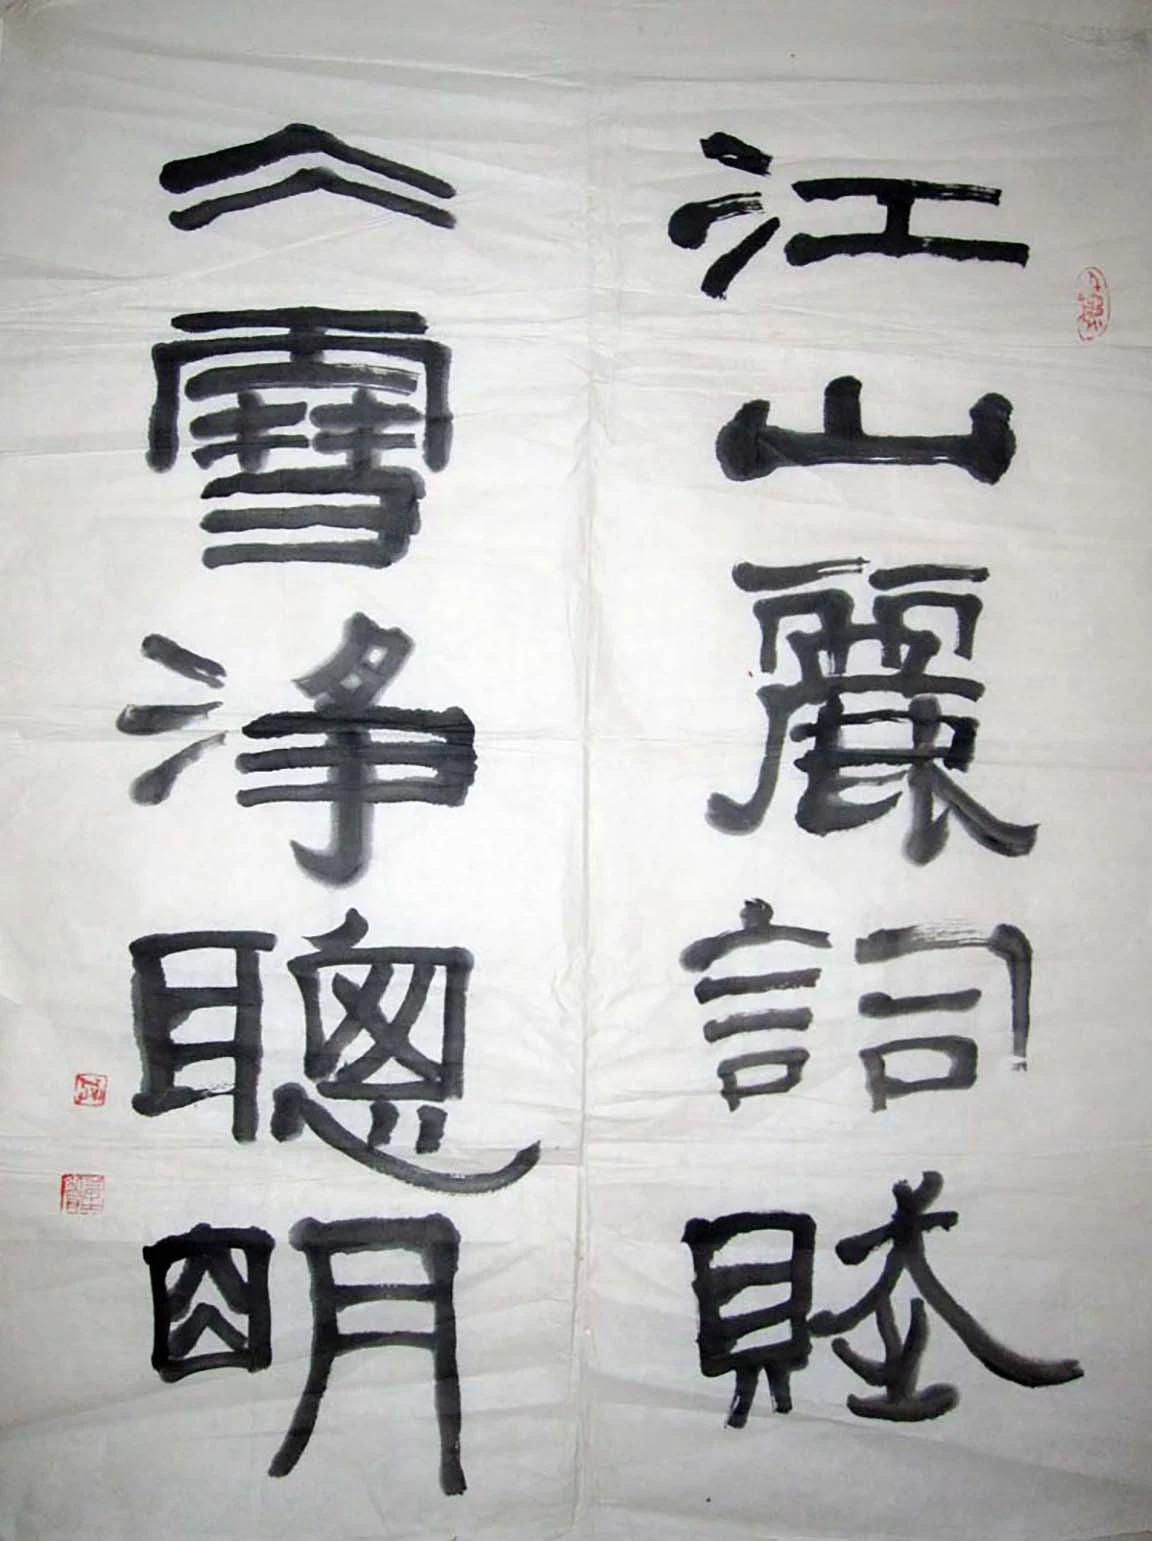 江山麗詞賦
仌雪淨聰明